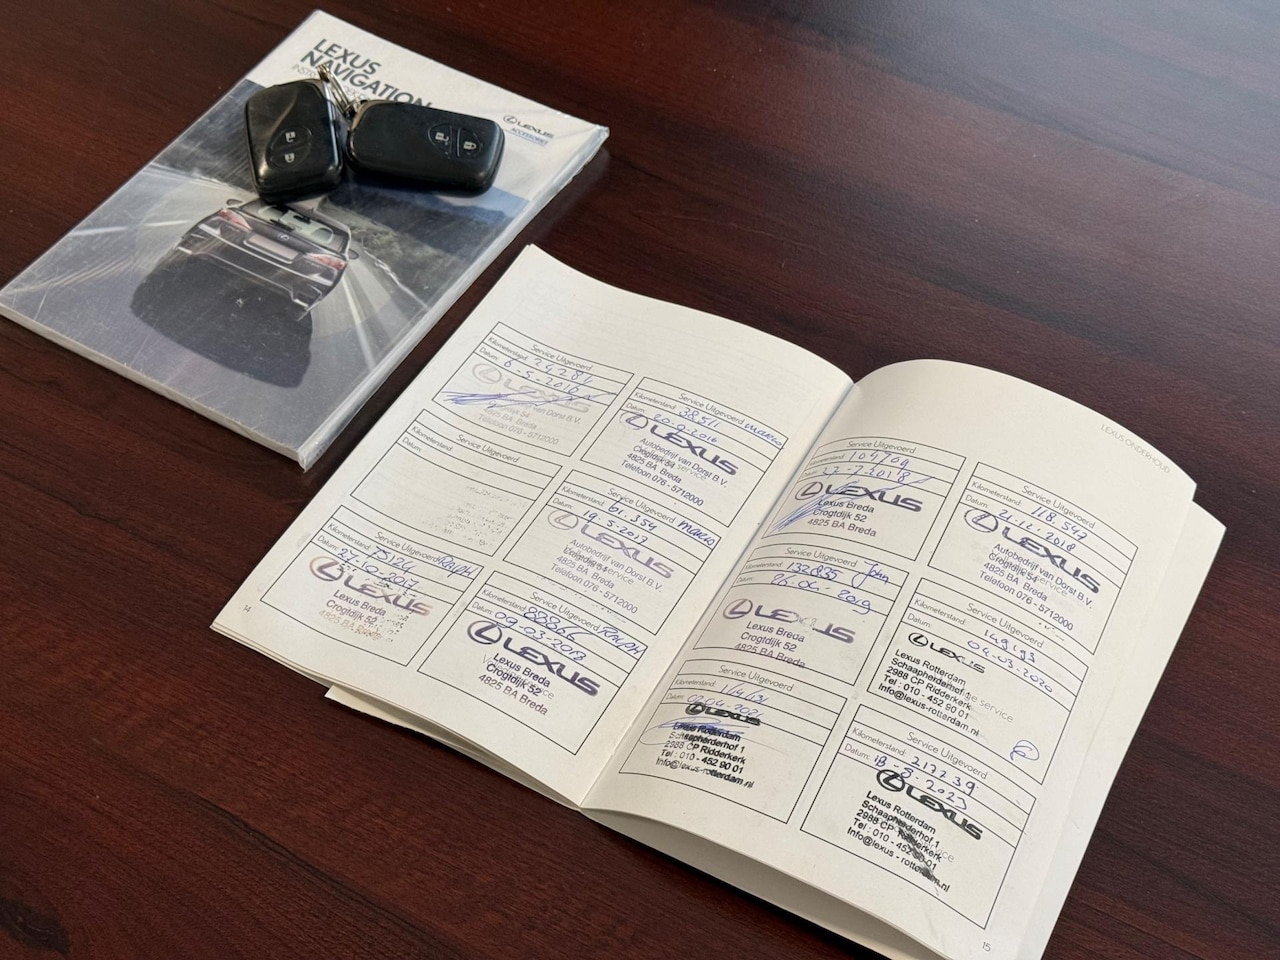 LEXUS
NAVIGATION
LEXUS
ACCESSORIES
Service Uitgevoerd
Kilometerstand 24284
Datum: 6-5-2016
LEXUS
van Dorst B.V.
4825 BA Breda
Telefoon 076-5712000
Service Uitgevoerd
Kilometerstand 38511 marco
Datum: 20-9-2016
LEXUS
Autobedrijf van Dorst B.V.
Crogtdijk 54
4825 BA Breda
Telefoon 076-5712000
Service Uitgevoerd
Kilometerstand
Datum:
Service Uitgevoerd
Kilometerstand 61.354 marco
Datum: 19-5-2017
LEXUS
Autobedrijf van Dorst B.V.
Crogtdijk 54
4825 BA Breda
Telefoon 076-5712000
Service Uitgevoerd
Kilometerstand RALPH
Datum: 27-10-2017
LEXUS
Lexus Breda
Crogtdijk 52
4825 BA Breda
Service Uitgevoerd
Kilometerstand RALPH
Datum: 09-03-2018
LEXUS
Lexus Breda
Crogtdijk 52
4825 BA Breda
14
LEXUS ONDERHOUD
Service Uitgevoerd
Kilometerstand 104709
Datum: 27-7-2018
LEXUS
Lexus Breda
Crogtdijk 52
4825 BA Breda
Service Uitgevoerd
Kilometerstand 118.547
Datum: 21.12.2018
LEXUS
Autobedrijf van Dorst B.V.
Crogtdijk 54
4825 BA Breda
Telefoon 076-5712000
Service Uitgevoerd
Kilometerstand 132835 John
Datum: 2019
LEXUS
Lexus Breda
Crogtdijk 52
4825 BA Breda
Service Uitgevoerd
Kilometerstand 149193
Datum: 04-03-2020
LEXUS
Lexus Rotterdam
Schaapherderhof 1
2988 CP Ridderkerk
Tel : 010 - 452 90 01
Info@lexus-rotterdam.nl
Service Uitgevoerd
Kilometerstand
Datum:
LEXUS
Lexus Rotterdam
Schaapherderhof 1
2988 CP Ridderkerk
Tel : 010 - 452 90 01
Info@lexus-rotterdam.nl
Service Uitgevoerd
Kilometerstand 217239
Datum: 18-8-2023
LEXUS
Lexus Rotterdam
Schaapherderhof 1
2988 CP Ridderkerk
Tel : 010 - 452 90 01
Info@lexus-rotterdam.nl
15